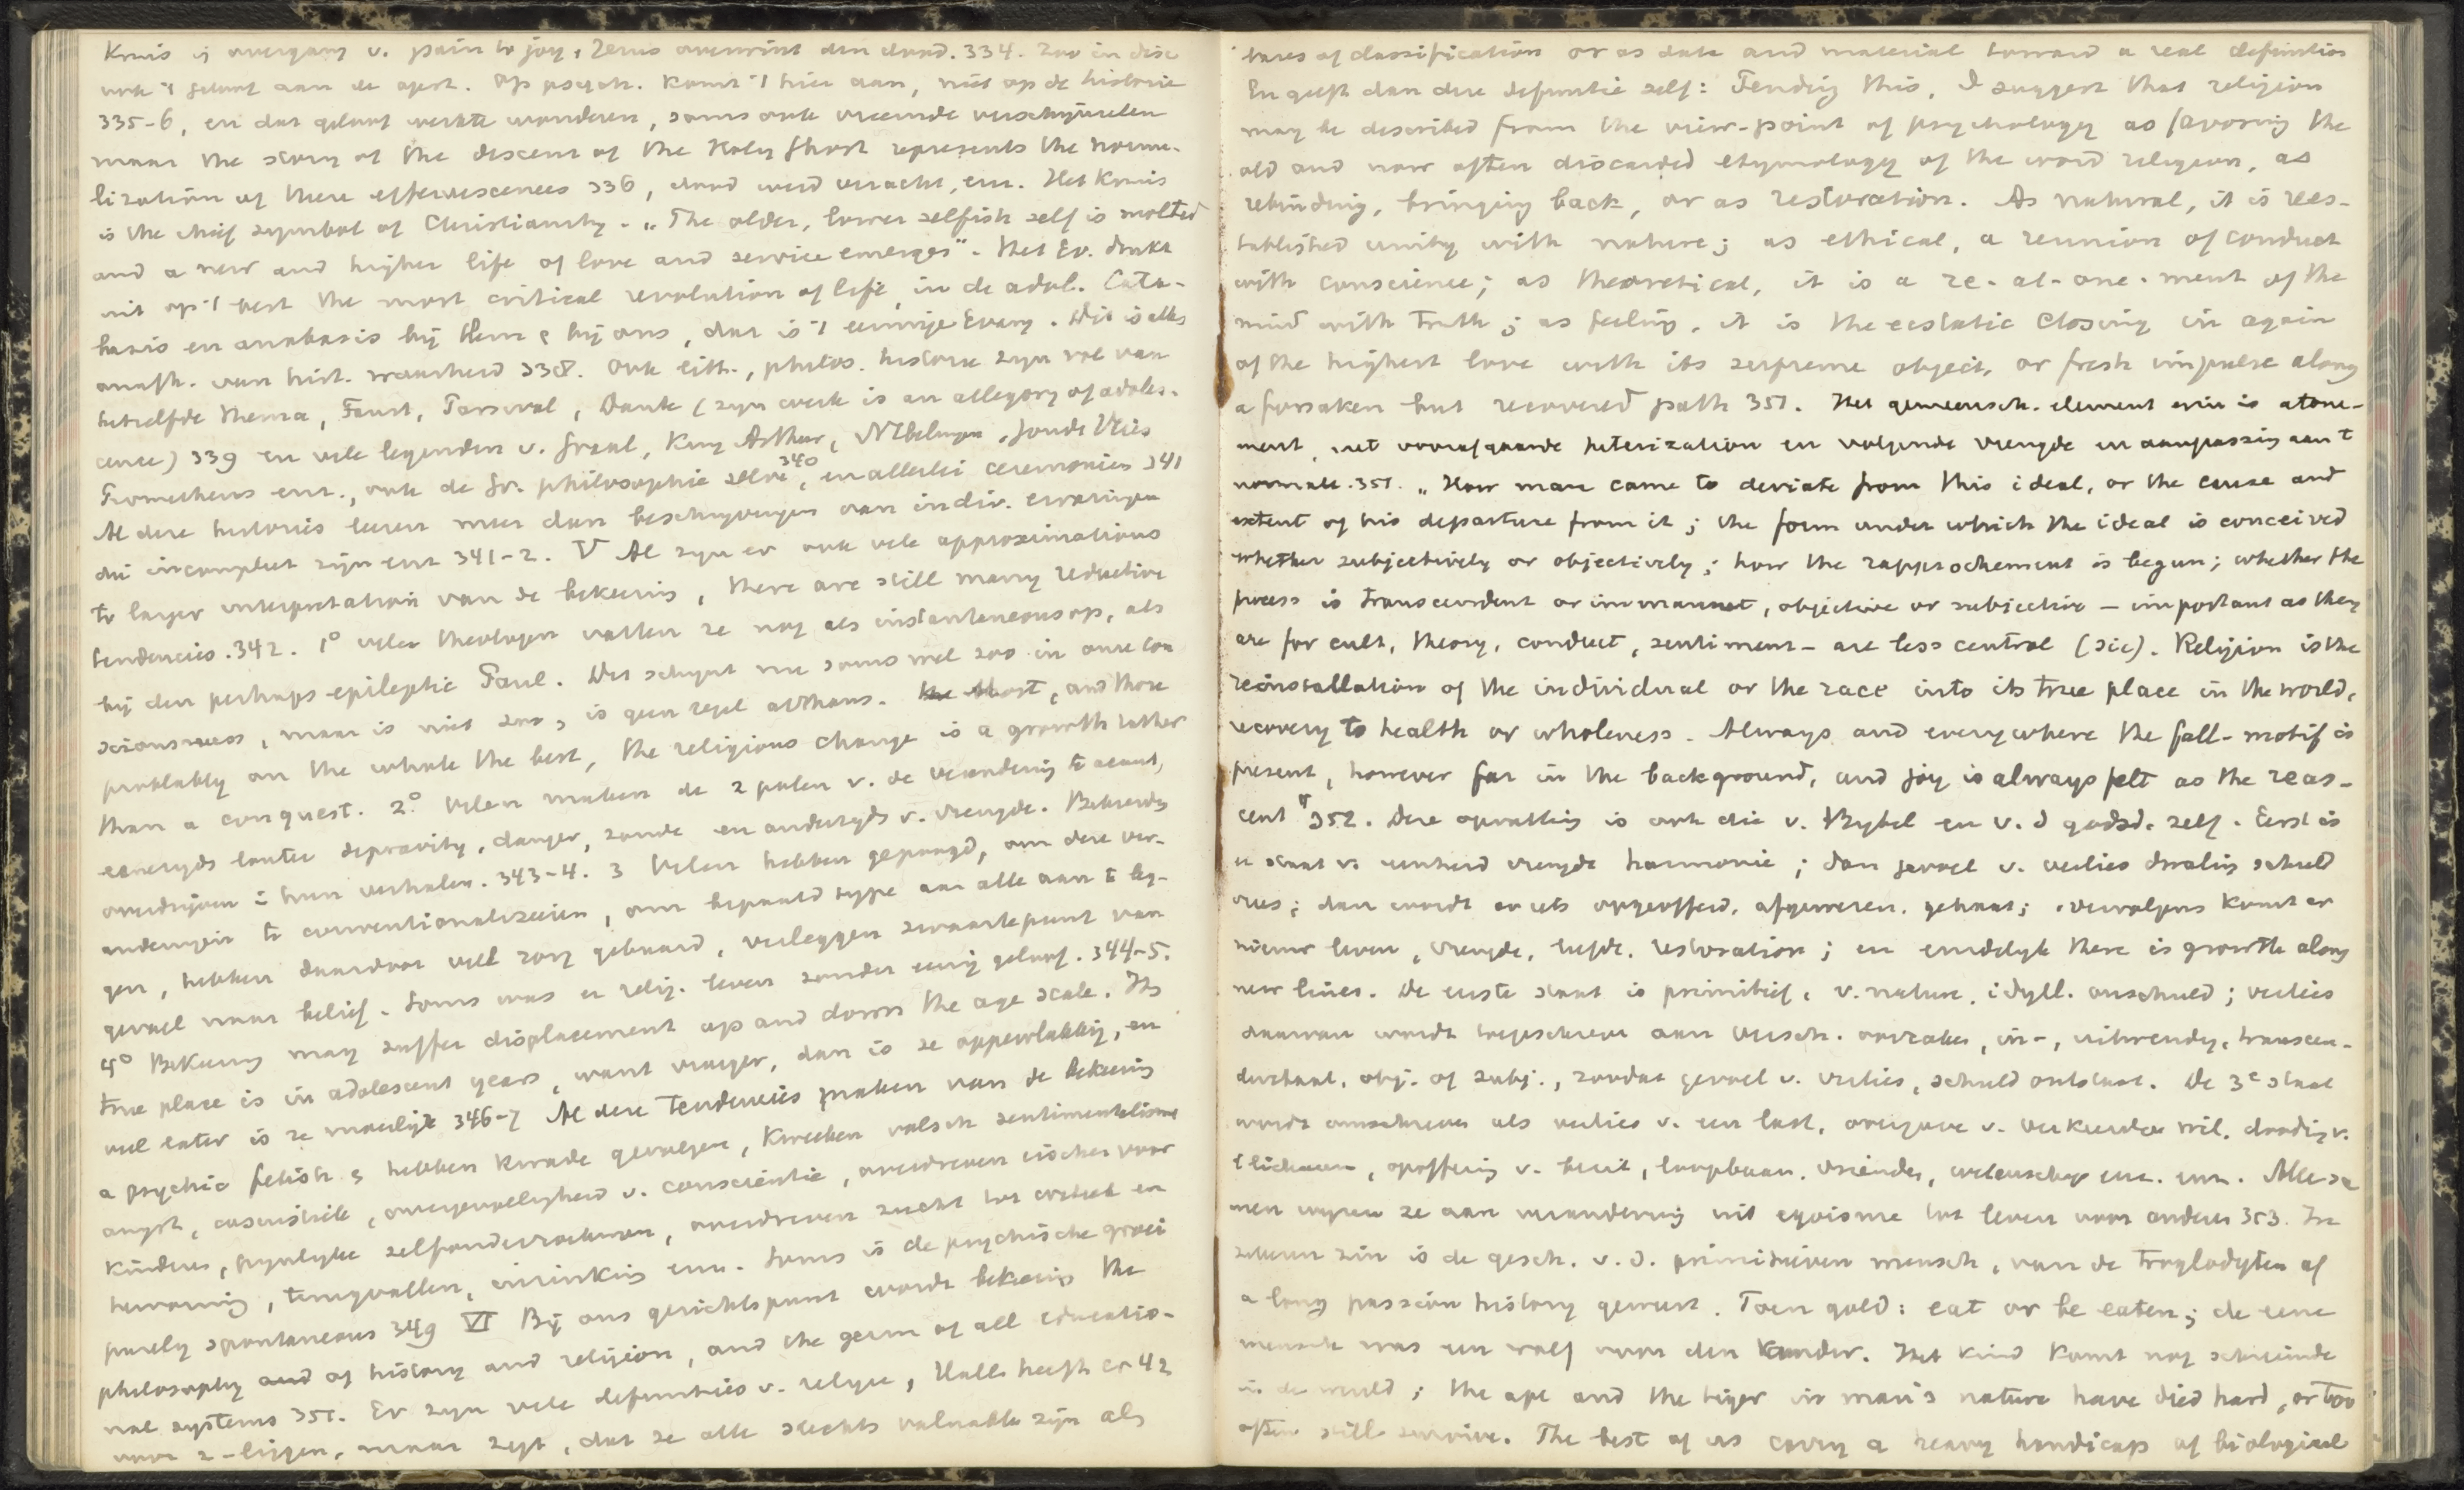 Kruis is overgang v. pain to joy, Jezus overwint den dood. 334. Zoo in disc
ook 't geloof aan de opst. Op psych. komt 't hier aan, niet op de historie
335-6, en dat geloof werkte wonderen, soms ook vreemde verschijnselen
maar the story of the descent of the Holy Ghost represents the norma-
lization of these effervescences 336, dood werd veracht, enz. Het kruis
is the chief symbol of Christianity. „The older, lower selfish self is molted
and a new and higher life of love and service emerges". Het Ev. drukt
uit op 't best the most critical revolution of life, in de adol. Cata-
basis en anabasis bij Hem & bij ons, dat is 't eeuwige Evang. Dit is alles
onafh. van hist. waarheid 338. Ook litt., philos. historie zijn vol van
hetzelfde thema, Faust, Parsival, Dante (zijn werk is an allegory of adoles-
cence) 339 en vele legenden v. Graal, King Arthur, Nibelungen,
Prometheus enz., ook de Gr. philosophie zelve 340, en allerlei ceremonies 341
Al deze histories leeren meer dan beschrijvingen van indiv. ervaringen
die incompleet zijn enz 341-2. V Al zijn er ook vele approximations
to larger interpretation van de bekeering, there are still many reductive
tendencies. 342. 1° vele theologen vatten ze nog als instantaneous op, als
bij den perhaps epileptic Paul. Dit schijnt nu soms wel zoo in onze con
sciousness, maar is niet zoo, is geen regel althans. most, and those
probably on the whole the best, the religious change is a growth rather
than a conquest. 2° Velen maken de 2 polen v. de verandering te absoluut,
eenerzijds louter depravity, danger, zonde en anderzijds v. vreugde. Bekeerden
overdrijven in hun verhalen. 343-4. 3 Velen hebben gepoogd, om deze ver-
anderingen te conventionaliseeren, om bepaald type aan alle aan te leg-
gen, hebben daardoor veel zorg gebaard, verleggen zwaartepunt van
gevoel naar belief. Soms was er relig. leven zonder eenig geloof. 344-5.
4° Bekeering may suffer displacement up and down the age scale. Its
true place is in adolescent years, want vroeger, dan is ze oppervlakkig, en
veel later is ze moeilijk 346-7 Al deze tendencies maken van de bekeering
a psychic fetish & hebben kwade gevolgen, kweeken valsch sentimentalisme
angst, casuistiek, overgevoeligheid v. conscientie, overdreven eischen voor
kinderen, pijnlijke zelfonderzoekingen, overdreven zucht tot
bewaring, terugvallen, inzinking enz. Soms is de psychische groei
purely spontaneous 349 VI Bij ons gezichtspunt wordt bekeering the
philosophy and of history and religion, and the germ of all educatio-
nal systems 351. Er zijn vele definities v. religie, Hall heeft er 42
voor z-liggen, maar zegt, dat ze alle slechts valuable zijn als
tares of classification or as data and material toward a real definition
En geeft dan deze definitie zelf: Pending this, I suggest that religion
may be described from the view-point of psychology as favoring the
old and now often discarded etymology of the word religion, as
rebinding, bringing back, or as restoration. As natural, it is rees-
tablished unity with nature; as ethical, a reunion of conduct
with conscience; as theoretical, it is a re-at-one-ment of the
mind with truth; as feeling, it is the ecstatic closing in again
of the highest love with its supreme object, or fresh impulse along
a forsaken but recovered path 351. Het gemeensch. element erin is atone-
ment, met voorafgaande heterization en volgende vreugde en aanpassing aan 't
normale. 351. „How man came to deviate from this ideal, or the cause and
extent of his departure from it; the form under which the ideal is conceived
whether subjectively or objectively; how the rapprochement is begun; whether the
process is transcendent or immanent, objective or subjective – important as they
are for cult, theory, conduct, sentiment – are less central (sic). Religion is the
reinstallation of the individual or the race into its true place in the world,
recovery to health or wholeness. Always and everywhere the fall-motif is
present, however far in the background, and joy is always felt as the reas-
cent" 352. Deze opvatting is ook die v. Bijbel en v. d godsd. zelf. Eerst is
er staat v. eenheid vreugde harmonie; dan gevoel v. verlies dwaling schuld
vrees; dan wordt er iets opgeofferd, afgezworen, gehaat; vervolgens komt er
nieuw leven, vreugde, liefde, restoration; en eindelijk there is growth along
new lines. De eerste staat is primitief, v. nature, idyll. onschuld; verlies
daarvan wordt toegeschreven aan versch. oorzaken, in-, uitwendig, transcen-
dentaal, obj. of subj., zoodat gevoel v. verlies, schuld ontstaat. De 3e staat
wordt omschreven als verlies v. een last, overgave v. verkeerden wil, dooding v.
't lichaam, opoffering v. bezit, loopbaan, vrienden, wetenschap enz. enz. Alle sa
men wijzen ze aan verandering uit egoisme tot leven voor anderen 353. In
zekeren zin is de gesch. v. d. primitieven mensch, van de troglodyten af
a long passion history geweest. Toen gold: eat or be eaten; de eene
mensch was een wolf voor den ander. Het kind komt nog schreiende
in de wereld; the ape and the tiger in man's nature have died hard, or too
often still survive. The best of us carry a heavy handicap of biological